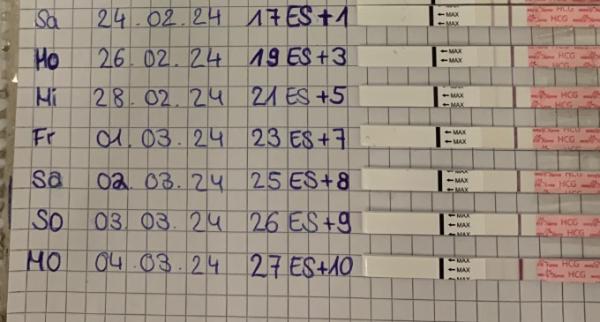 Sa 24.02.24 17 ES+1 ←MAX HCG
Mo 26.02.24 19 ES+3 ←MAX HCG
Mi 28.02.24 21 ES+5 ←MAX HCG
Fr 01.03.24 23 ES+7 ←MAX HCG
Sa 02.03.24 25 ES+8 ←MAX HCG
SO 03.03.24 26 ES+9 ←MAX HCG
MO 04.03.24 27 ES+10 ←MAX HCG